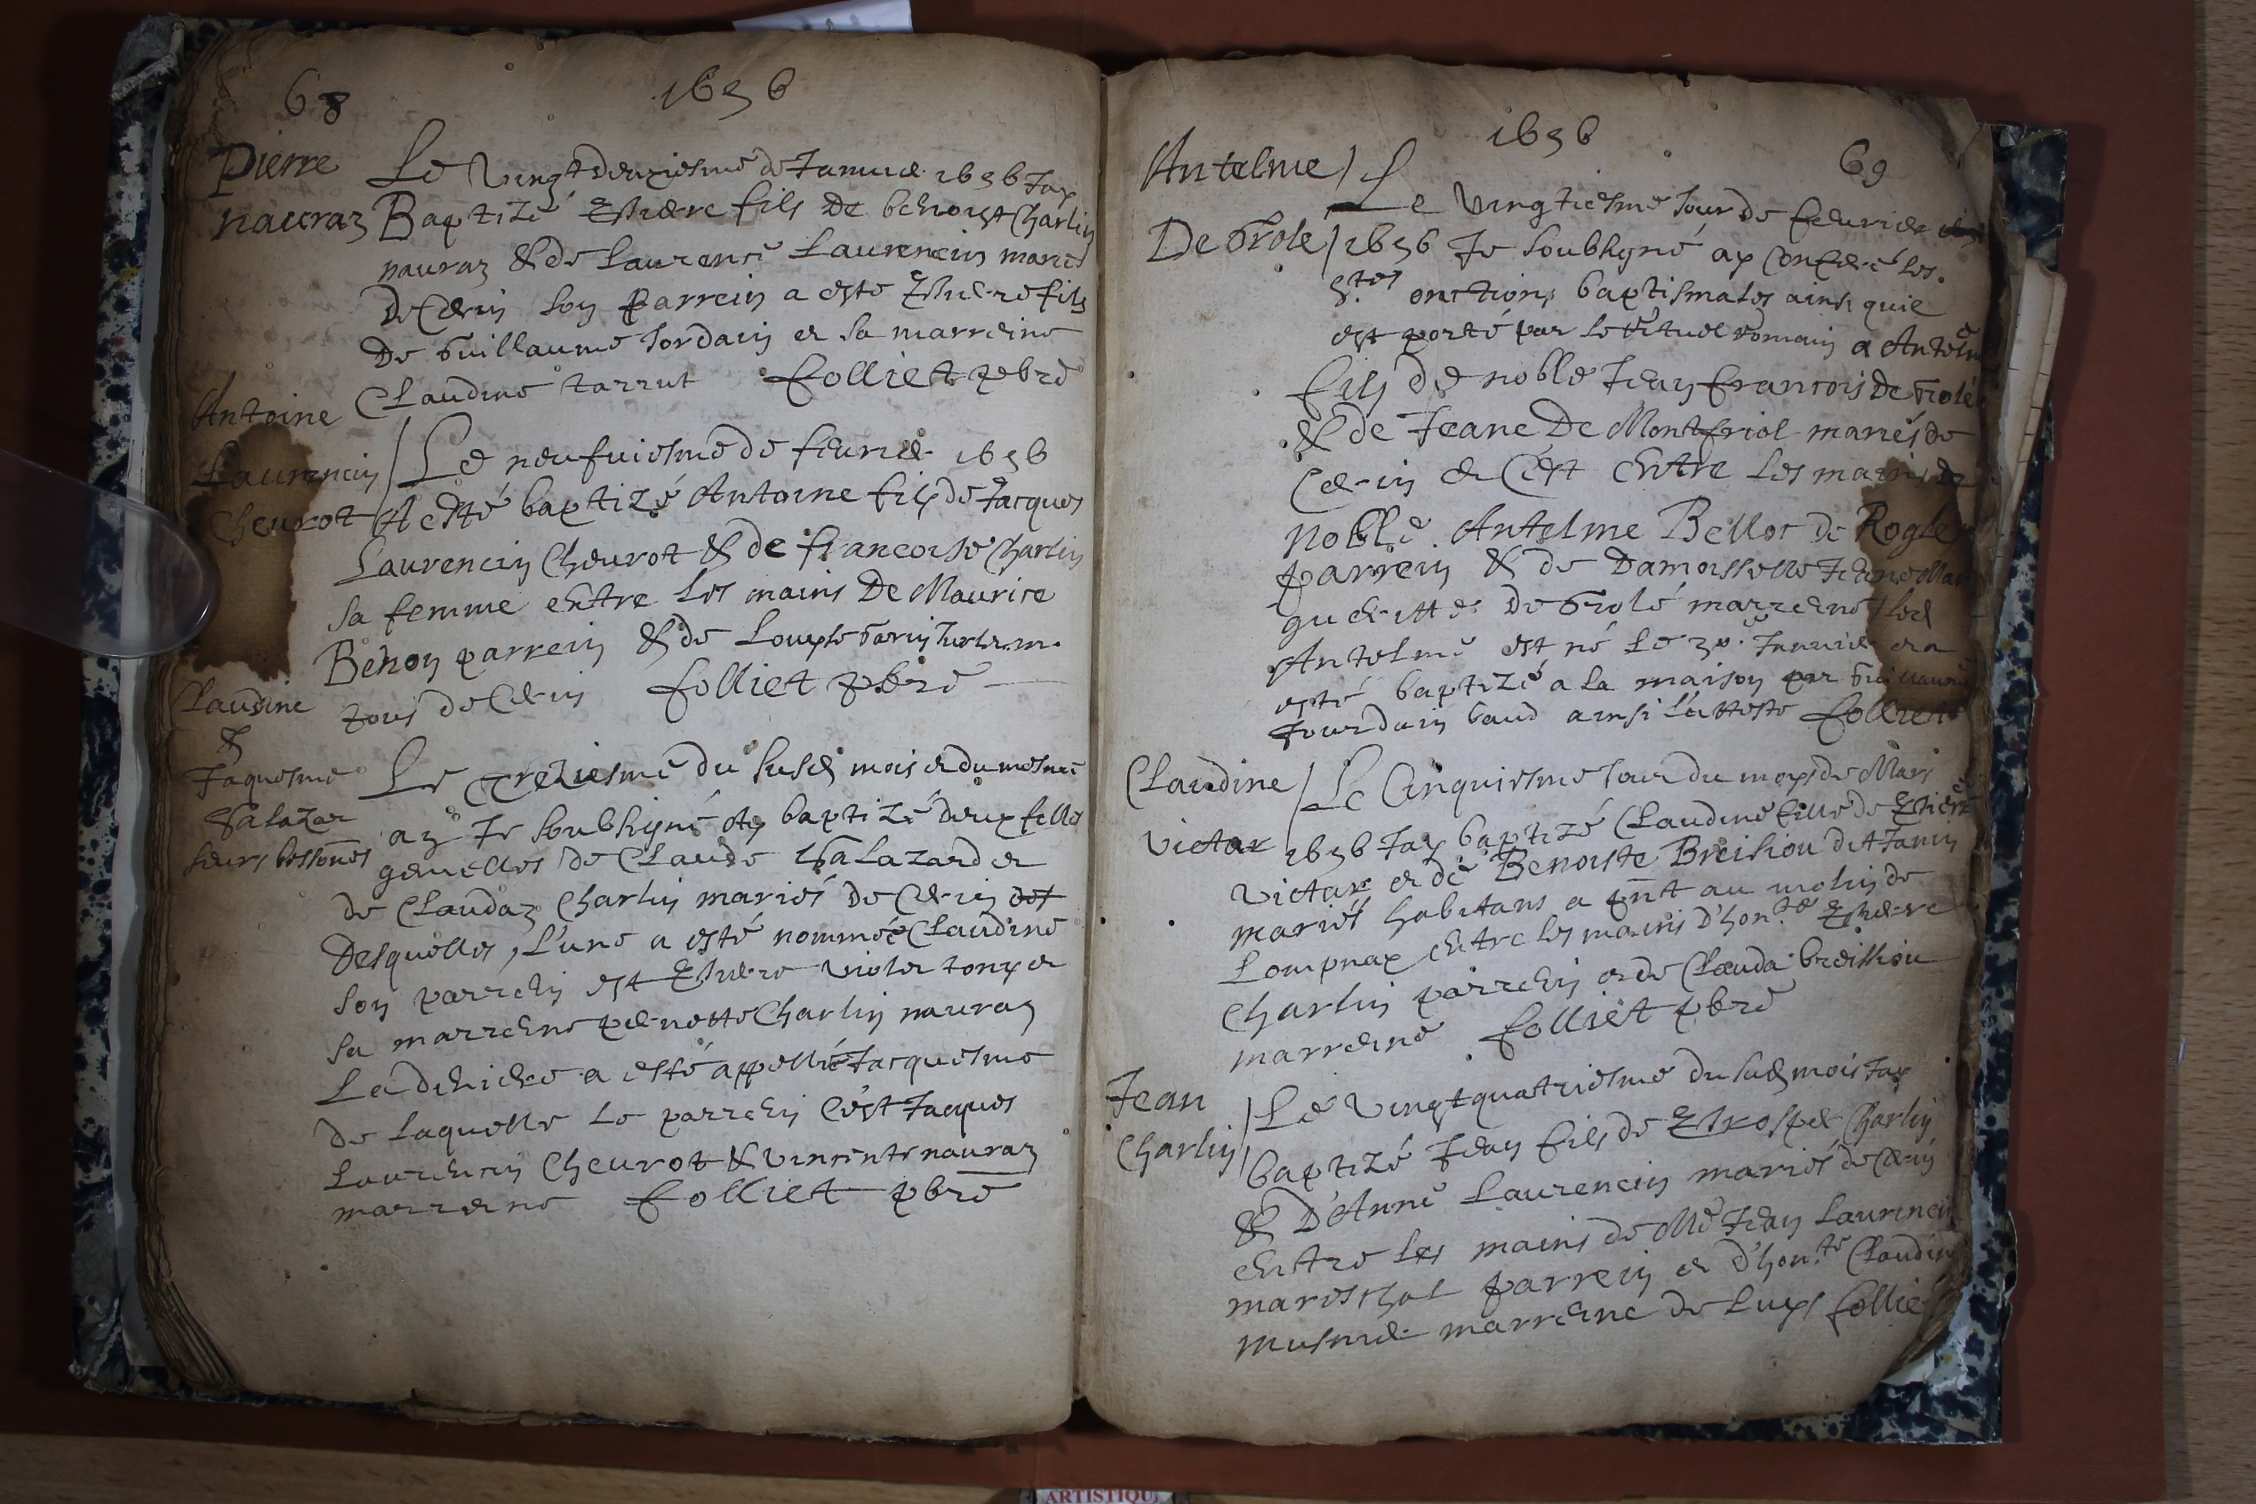 68 1656
Pierre
nauraz
Le vingt deuxiesme de Januier 1656 Jay
Baptizé Pierre fils de benoist Charlin
nauraz & de Laurence Laurencin mariés
de Cerin son parrein a esté Pierre fils
De Guillaume Jordain et sa marreine
Claudine tarrut folliet pbre
Antoine
Laurencin
Cheurot
Le neufuiesme de feurier 1656
A esté baptizé Antoine fils de Jacques
Laurencin Cheurot & de francoise Charlin
sa femme entre les mains De Maurice
Benon parrein & de
tous de Cerin folliet pbre
Claudine
&
Jaquesme
Salazar
seurs bessones
Le treziesme du susd mois et du mesme
an Je soubsigné ay baptizé deux filles
gemelles de Claude Salazard et
de Claudaz Charlin mariés de Cerin
Desquelles, l'une a esté nommée Claudine
son parrein est Pierre violet tony et
sa marreine pernette Charlin nauraz
La derniere a esté appellée Jacquesme
de laquelle le parrein c'est Jacques
Laurencin Cheurot & vincente nauraz
marreine folliet pbre
1656 69
Antelme
De Grole
Le vingtiesme Jour de feurier
1656 Je soubsigné ay conferé les
Stes onctions baptismales ainsi quie
est porté par le rituel romain a Antelme
fils de noble Jean francois De Grolé
& de Jeane De Montfriol mariés de
Cerin et c'est entre les mains de
noble Antelme Bellot de
parrein & de Damoisselle Jeane Mar
gueritte de Grolé marreine led
Antelme est né le 30 Januier et a
esté baptizé a la maison par Guillaume
Jourdain baud ainsi l'atteste folliet
Claudine
victar
Le Cinquiesme Jour du moys de Mars
1656 Jay baptizé Claudine fille de Pierre
victar et de Benoiste dit Janin
mariés habitans a pnt au molin de
Lompnax entre les mains d'honte Pierre
Charlin parrein et de Clauda
marreine folliet pbre
Jean
Charlin
Le vingt quatriesme du susd mois Jay
baptizé Jean fils de Prosper Charlin
& D'Anne Laurencin mariés de Cerin
entre les mains de Me Jean Laurencin
mareschal parrein et d'honte Claudine
musnier marreine de Luys folliet